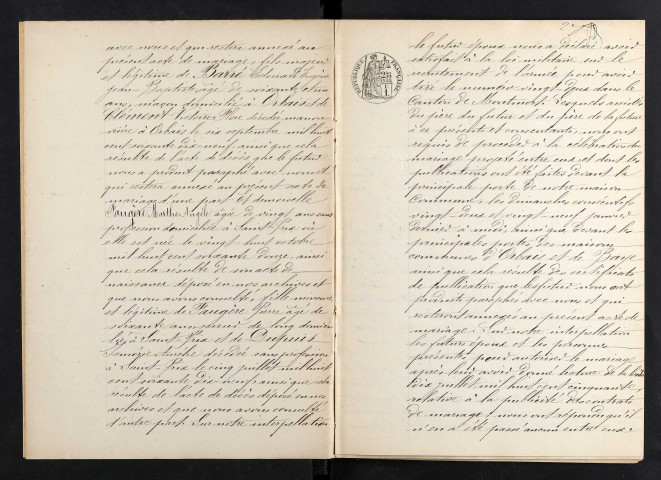 avec nous et qui restera annexé au
présent acte de mariage, fils majeur
et légitime de Barré Edouard
Jean Baptiste âgé de soixante et un
ans, maçon domicilié à Orbais et de
Clément Victoire décédée manou-
vrière à Orbais le six septembre mil huit
cent soixante dix neuf ainsi que cela
résulte de l'acte de décès que le futur
nous a produit paraphé avec nous et
qui restera annexé au présent acte de
mariage d'une part. Et demoiselle
Faugère Marthe Angèle âgée de vingt ans sans
profession domiciliée à Saint-Prix où
elle est née le vingt huit octobre
mil huit cent soixante douze, ainsi
que cela résulte de son acte de
naissance déposé en nos archives et
que nous avons consulté, fille mineure
et légitime de Faugère Pierre âgé de
soixante ans scieur de long domici-
lié à Saint-Prix et de Dupuis
décédée sans profession
à Saint-Prix le cinq juillet mil huit
cent soixante dix neuf ainsi que cela
résulte de l'acte de décès déposé en nos
archives et que nous avons consulté
d'autre part. Sur notre interpellation
RÉPUBLIQUE FRANÇAISE
le futur époux nous a déclaré avoir
satisfait à la loi militaire sur le
recrutement de l'armée pour avoir
tiré le numéro vingt dans le
Canton de Montmort. Lesquels assistés
du père du futur et du père de la future
à ce présents et consentants, nous ont
requis de procéder à la célébration du
mariage projeté entre eux et dont les
publications ont été faites devant la
principale porte de notre maison
Commune, les dimanches consécutifs
vingt deux et vingt neuf janvier
dernier à midi, ainsi que devant les
principales portes des maisons
communes d'Orbais et de Baye
ainsi que cela résulte des certificats
de publication que les futurs nous ont
produits paraphés avec nous et qui
resteront annexés au présent acte de
mariage. Sur notre interpellation
les futurs époux et les personnes
présentes pour autoriser le mariage
après lui avoir donné lecture de la loi du
dix juillet mil huit cent cinquante
relative à la publicité des contrats
de mariage, nous ont répondu qu'il
n'en a été passé aucun entre eux.